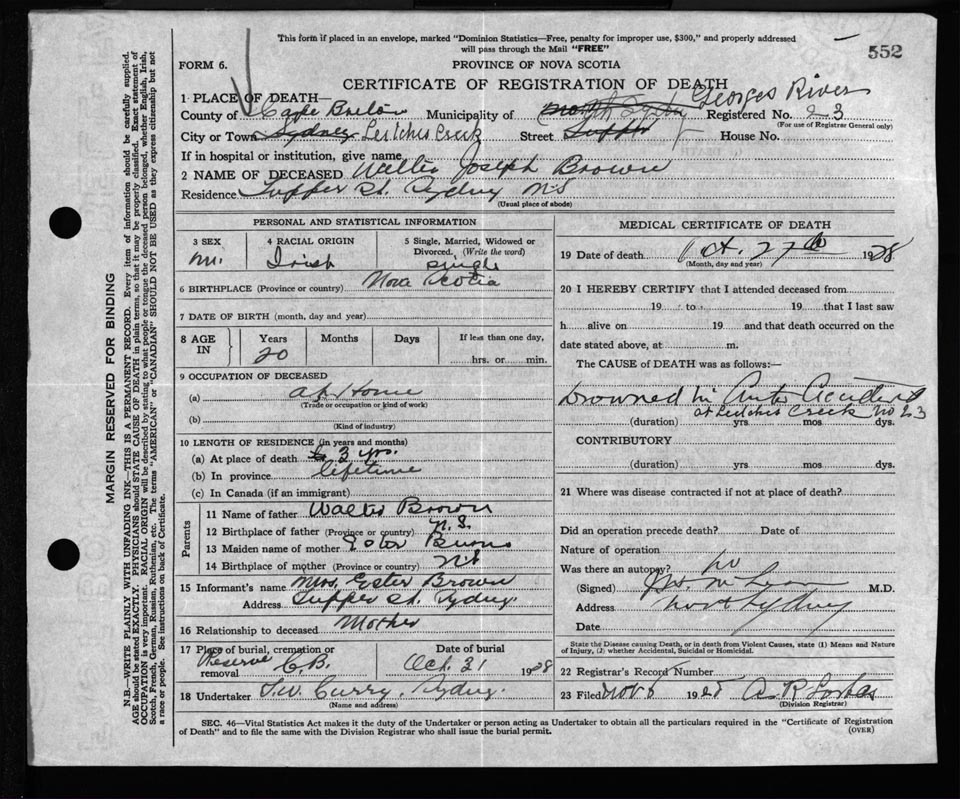 This form if placed in an envelope, marked "Dominion Statistics—Free, penalty for improper use, $300," and properly addressed
will pass through the Mail "FREE"
552
FORM 6.
PROVINCE OF NOVA SCOTIA
CERTIFICATE OF REGISTRATION OF DEATH
1 PLACE OF DEATH— Georges River
County of Cape Breton Municipality of North Sydney Registered No. 23
(For use of Registrar General only)
City or Town Sydney Leitches Creek Street Tupper House No.
If in hospital or institution, give name
2 NAME OF DECEASED Walter Joseph Brown
Residence Tupper St. Sydney N.S
(Usual place of abode)
PERSONAL AND STATISTICAL INFORMATION
3 SEX 4 RACIAL ORIGIN 5 Single, Married, Widowed or Divorced. (Write the word)
M. Irish single
6 BIRTHPLACE (Province or country) Nova Scotia
7 DATE OF BIRTH (month, day and year)
8 AGE IN Years Months Days If less than one day,
20 hrs. or min.
9 OCCUPATION OF DECEASED
(a) at Home
(Trade or occupation or kind of work)
(b)
(Kind of industry)
10 LENGTH OF RESIDENCE (in years and months)
(a) At place of death 3 yrs.
(b) In province lifetime
(c) In Canada (if an immigrant)
Parents
11 Name of father Walter Brown
12 Birthplace of father (Province or country) N.S.
13 Maiden name of mother Ester Burns
14 Birthplace of mother (Province or country) N.S
15 Informant's name Mrs. Ester Brown
Address Tupper St. Sydney.
16 Relationship to deceased Mother
17 Place of burial, cremation or removal Date of burial
Reserve C.B. Oct. 31 1928
18 Undertaker T.W. Curry, Sydney.
(Name and address)
MEDICAL CERTIFICATE OF DEATH
19 Date of death Oct. 27th 1928
(Month, day and year)
20 I HEREBY CERTIFY that I attended deceased from
19 to 19 that I last saw
h alive on 19 and that death occurred on the
date stated above, at m.
The CAUSE of DEATH was as follows:—
Drowned in Auto Accident
at Leitches Creek no 23
(duration) yrs mos dys.
CONTRIBUTORY
(duration) yrs mos dys.
21 Where was disease contracted if not at place of death?
Did an operation precede death? Date of
Nature of operation
Was there an autopsy? no
(Signed) McLean M.D.
Address North Sydney
Date
State the Disease causing Death, or in death from Violent Causes, state (1) Means and Nature
of Injury, (2) whether Accidental, Suicidal or Homicidal.
22 Registrar's Record Number
23 Filed Nov 6 1928 A R Forbes
(Division Registrar)
SEC. 46—Vital Statistics Act makes it the duty of the Undertaker or person acting as Undertaker to obtain all the particulars required in the "Certificate of Registration
of Death" and to file the same with the Division Registrar who shall issue the burial permit.
(OVER)
MARGIN RESERVED FOR BINDING
N.B.—WRITE PLAINLY WITH UNFADING INK—THIS IS A PERMANENT RECORD. Every item of information should be carefully supplied.
AGE should be stated EXACTLY. PHYSICIANS should STATE CAUSE OF DEATH in plain terms, so that it may be properly classified. Exact statement of
OCCUPATION is very important. RACIAL ORIGIN will be described by stating to what people or tongue the deceased person belonged, whether English, Irish,
Scotch, French, German, Russian, Ruthenian, etc. The terms "AMERICAN" or "CANADIAN" SHOULD NOT BE USED as they express citizenship but not
a race or people. See instructions on back of Certificate.